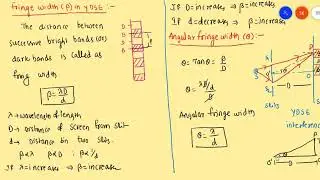 fringe width (β) in YDSE :-
The distance between
successive bright bands (or)
dark bands is called as
fring width
β = λD/d
λ → wavelength of length
D → distance of screen from slit
d → distance b/w two slits.
β α λ β α D ; β α 1/d
If λ = increase ⇒ β = increase
B
D
B
D
B
β
If D = increase ⇒ β = increase
If d = decrease ⇒ β = increase
Angular fringe width (θ) :-
θ = tanθ = β/D
θ = λD/d/D
Angular fringe width
θ = λ/d
slits
YDSE
interference